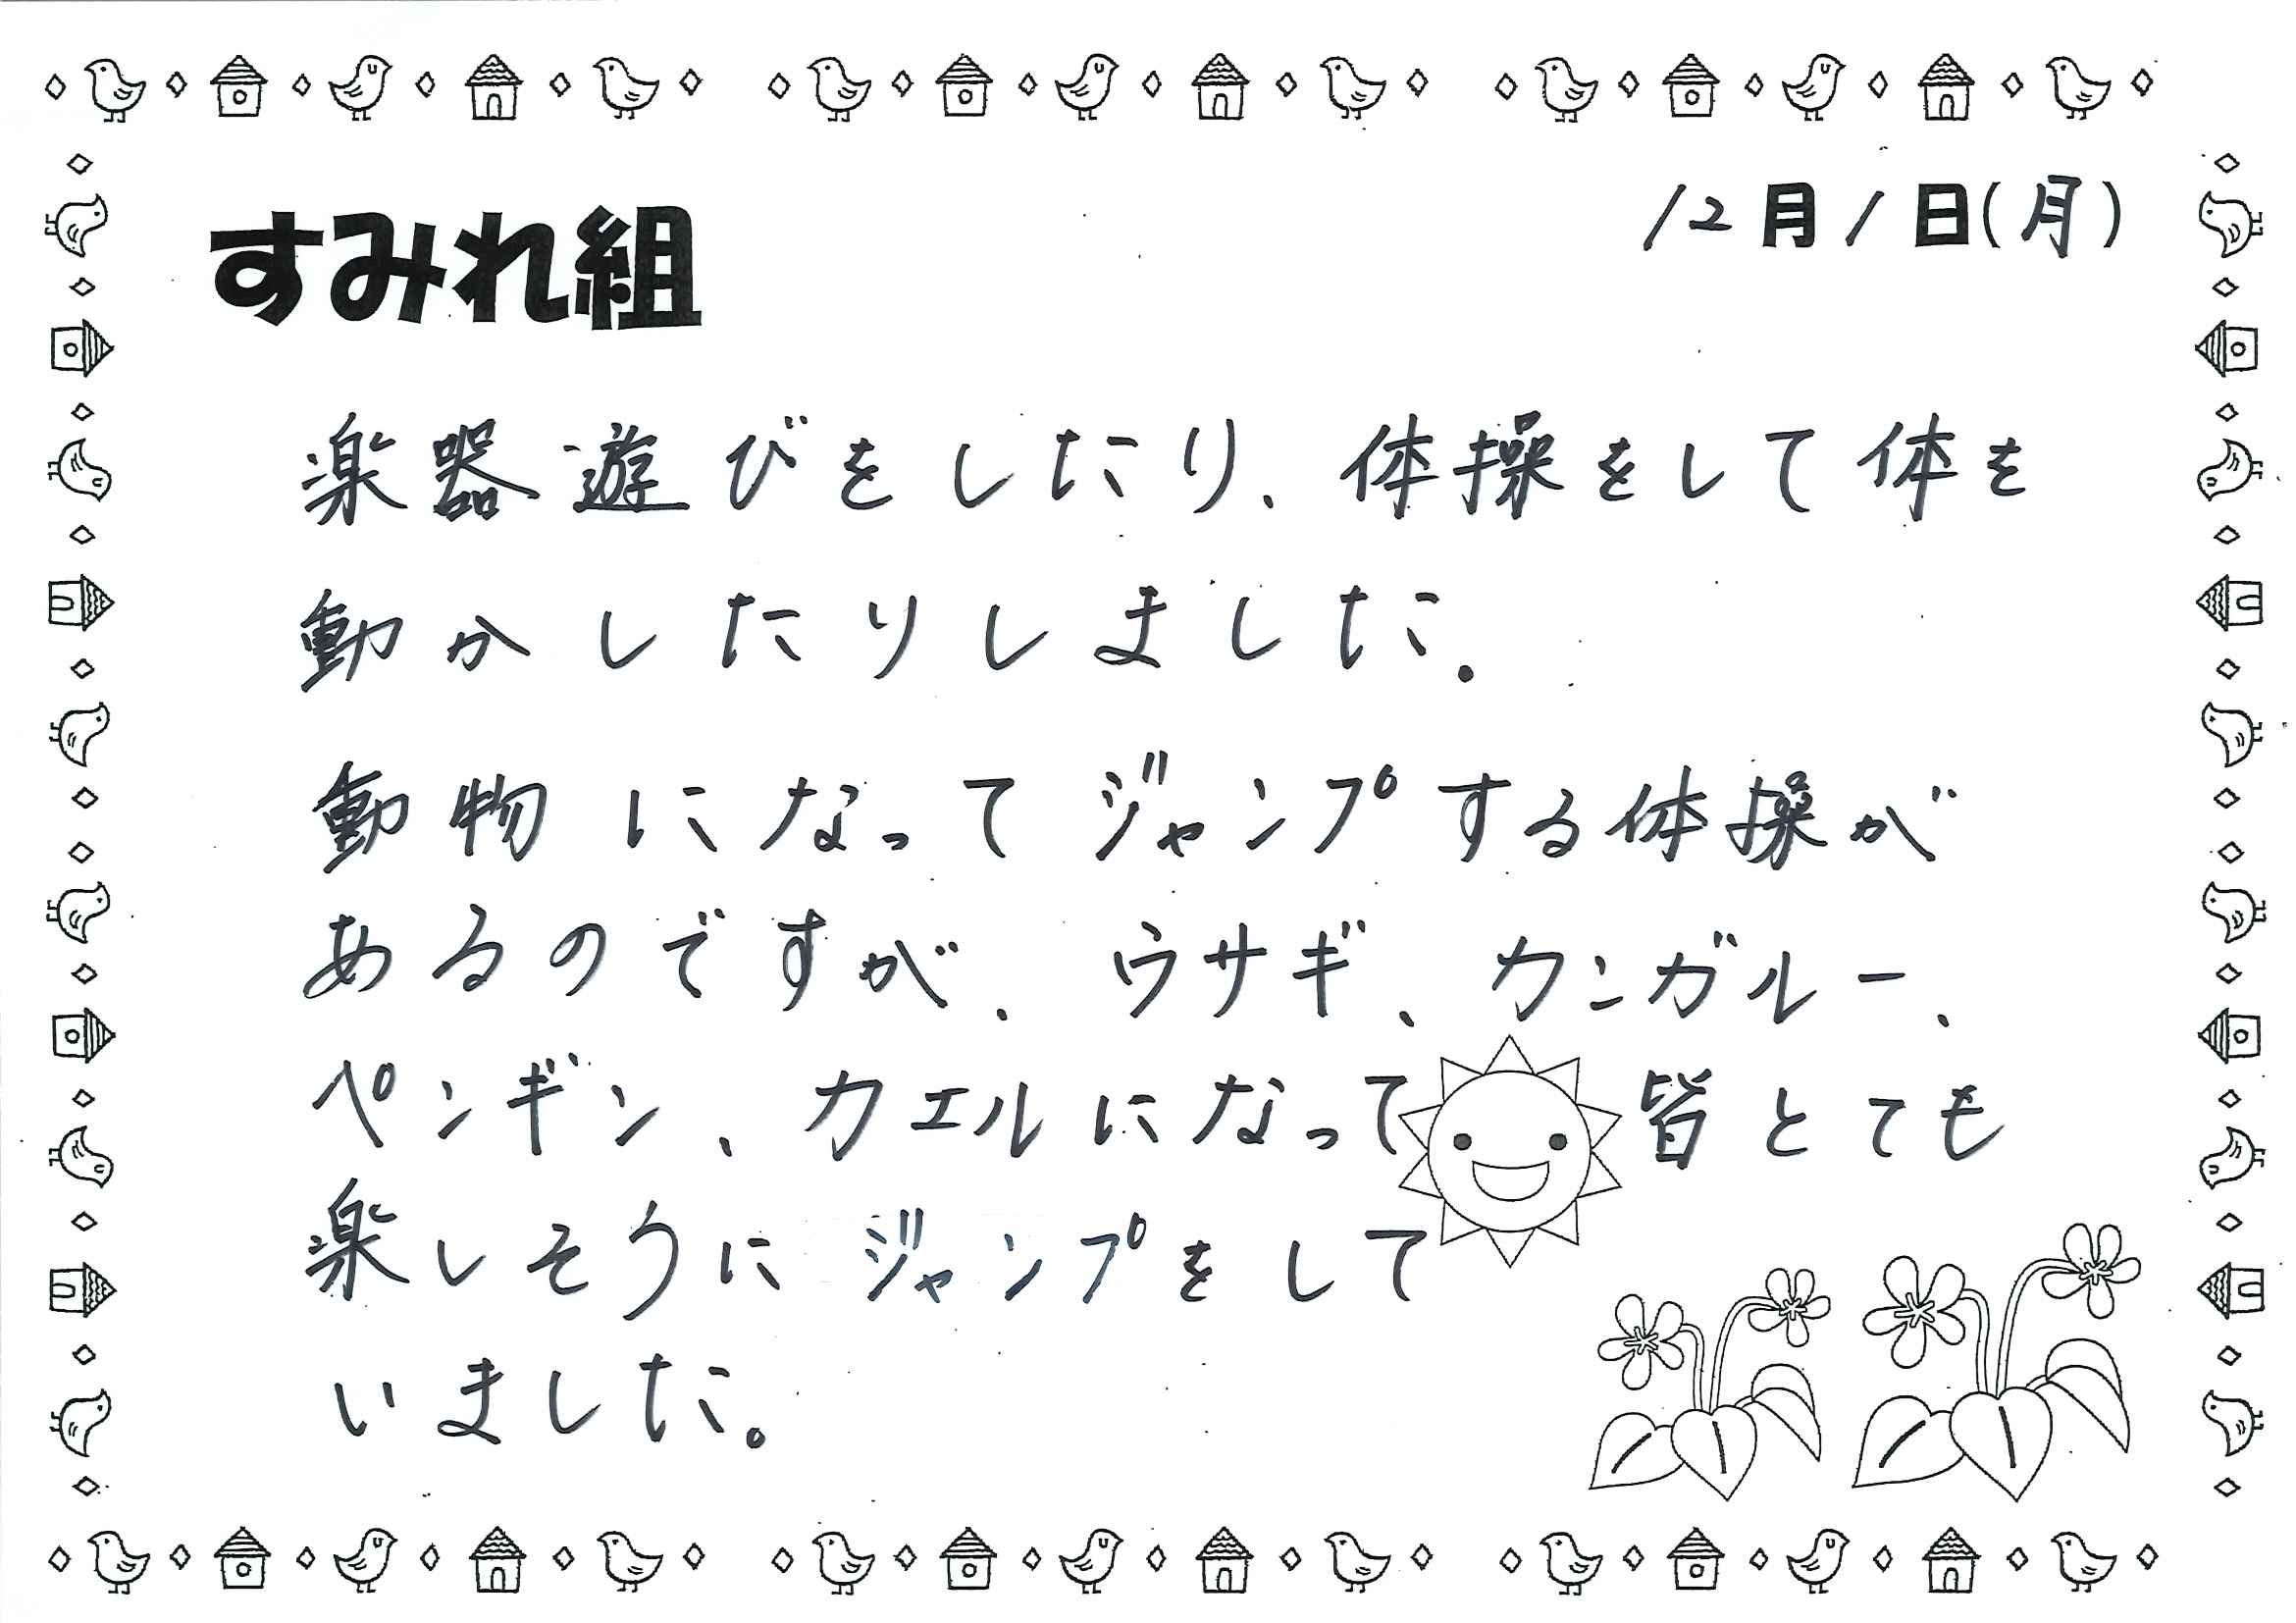 すみれ組
12月1日(月)
楽器遊びをしたり、体操をして体を
動かしたりしました.
動物になってジャンプする体操が
あるのですが、ウサギ、カンガルー、
ペンギン、カエルになって皆とても
楽しそうにジャンプをして
いました。